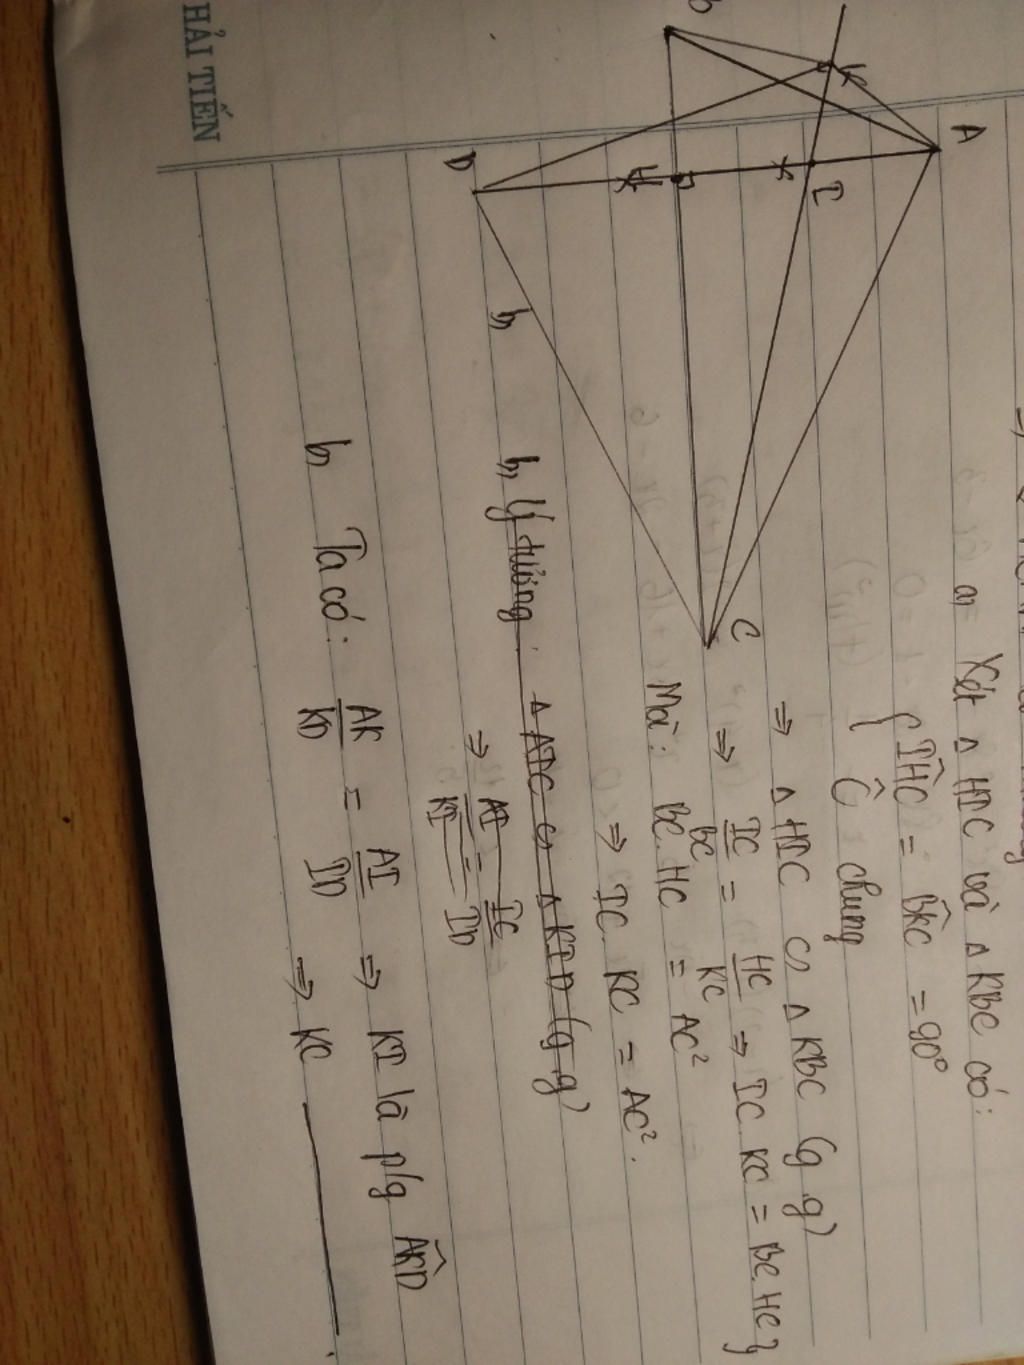 HẢI TIẾN
B
K
A
I
H
D
C
a, Xét Δ HIC và Δ KBC có:
{ IHC = BKC = 90°
Ĉ chung
⇒ Δ HIC ∽ Δ KBC (g.g)
⇒ IC/BC = HC/KC ⇒ IC.KC = BC.HC }
Mà: BC.HC = AC²
⇒ IC.KC = AC².
b,
b, Ý tưởng: Δ AIC ∽ Δ KID (g.g)
⇒ AI/KI = IC/ID
b, Ta có: AK/KD = AI/ID ⇒ KI là p/g AKD
⇒ KC